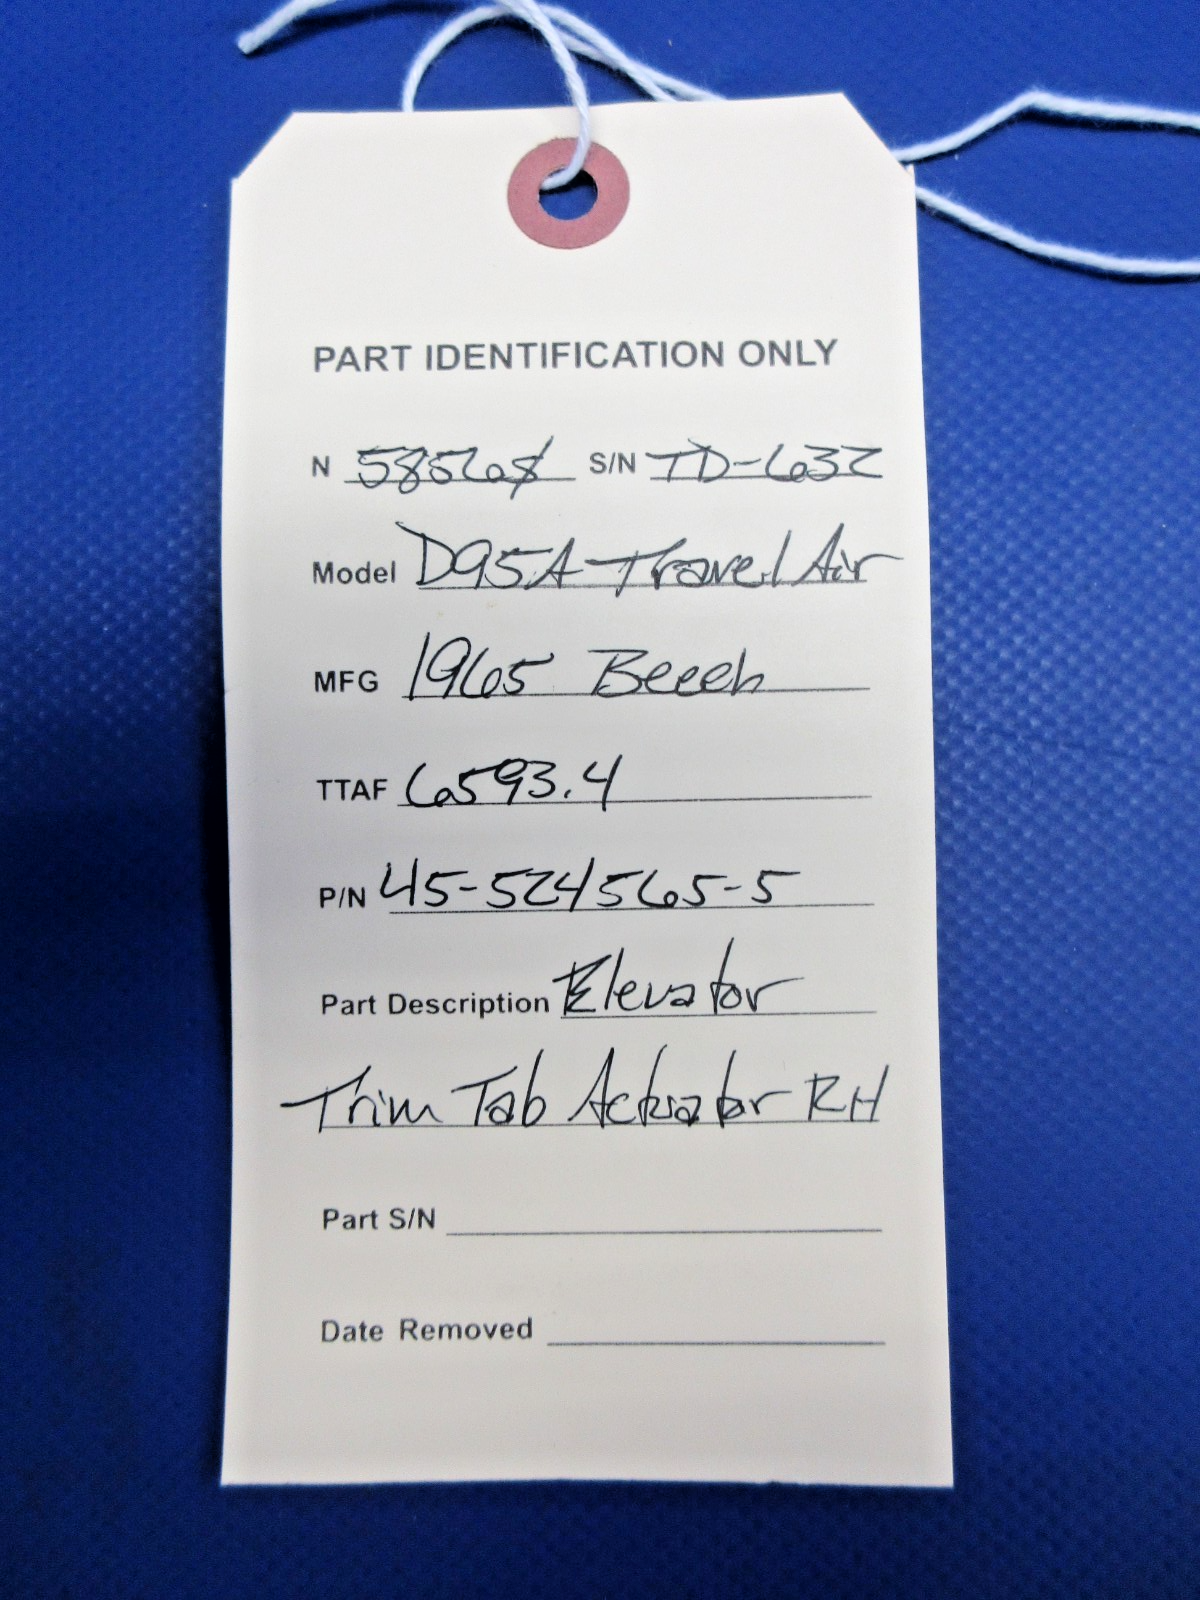 PART IDENTIFICATION ONLY
N 5856S S/N TD-632
Model D95A Travel Air
MFG 1965 Beech
TTAF 6593.4
P/N 45-524565-5
Part Description Elevator
Trim Tab Actuator RH
Part S/N
Date Removed